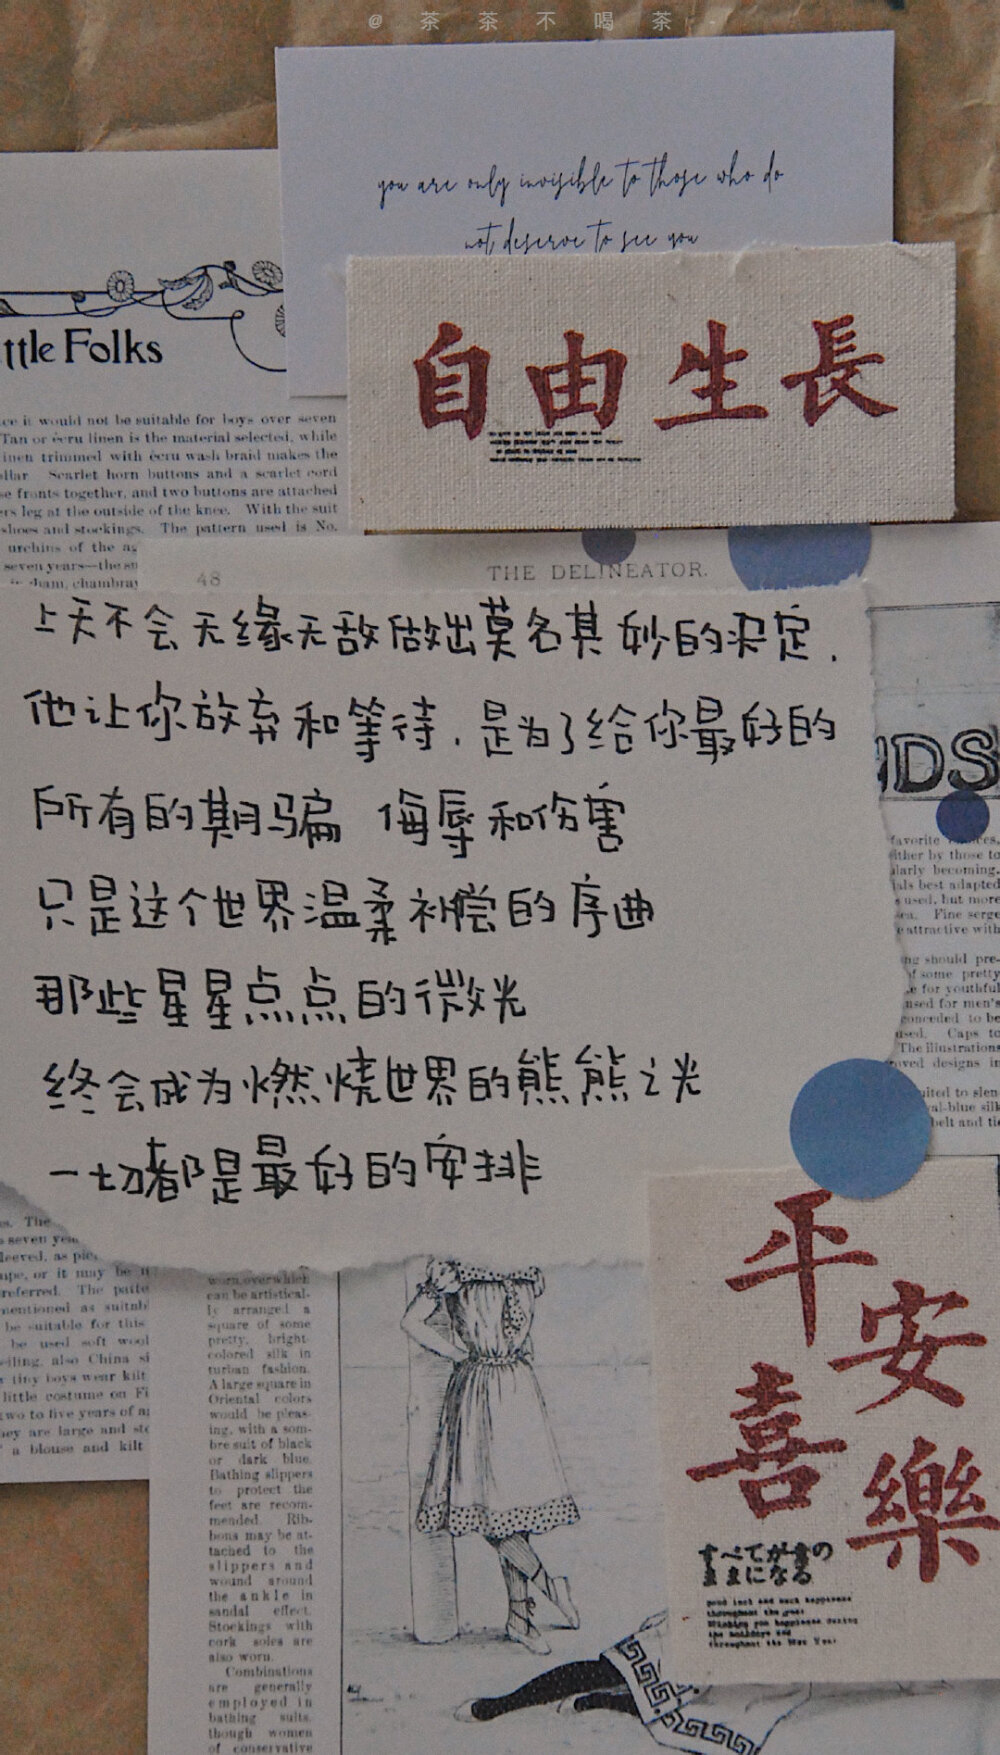 @茶茶不喝茶
you are only invisible to those who do
not deserve to see you
ttle Folks
自由生長
ce it would not be suitable for boys over seven
Tan or écru linen is the material selected, while
inen trimmed with écru wash braid makes the
llar Scarlet horn buttons and a scarlet cord
se fronts together, and two buttons are attached
ers leg at the outside of the knee. With the suit
shoes and stockings. The pattern used is No.
urchins of the ag
seven years—the su
ham, chambray
48
THE DELINEATOR.
上天不会无缘无敌做出莫名其妙的决定.
他让你放弃和等待.是为了给你最好的
所有的期骗 侮辱和伤害
只是这个世界温柔补偿的序曲
那些星星点点的微光
终会成为燃烧世界的熊熊之光
一切都是最好的安排
NDS
favorite
ither by those to
larly becoming.
als best adapted
s used, but more
sea. Fine serge
e attractive with
ng should pre-
of some pretty
e for youthful
used for men's
conceded to be
used. Caps to
The illustrations
oved designs in
uited to slen-
val-blue silk
belt and tie
s. The
seven yea
leeved, as pic
ape, or it may be
referred. The patte
mentioned as suitab
be suitable for this
be used soft wool
eiling, also China si
tiny boys wear kilt
little costume on Fi
two to five years of a
hey are large and sto
a blouse and kilt
worn, over which
can be artistical-
ly arranged a
square of some
pretty, bright-
colored silk in
turban fashion.
A large square in
Oriental colors
would be pleas-
ing, with a som-
bre suit of black
or dark blue.
Bathing slippers
to protect the
feet are recom-
mended. Rib-
bons may be at-
tached to the
slippers and
wound around
the ankle in
sandal effect.
Stockings with
cork soles are
also worn.
Combinations
are generally
employed in
bathing suits,
though women
of conservative
平安
喜樂
すべてが
ままになる
good luck and much happiness
throughout the year
Wishing you happiness during
the holidays and
throughout the New Year